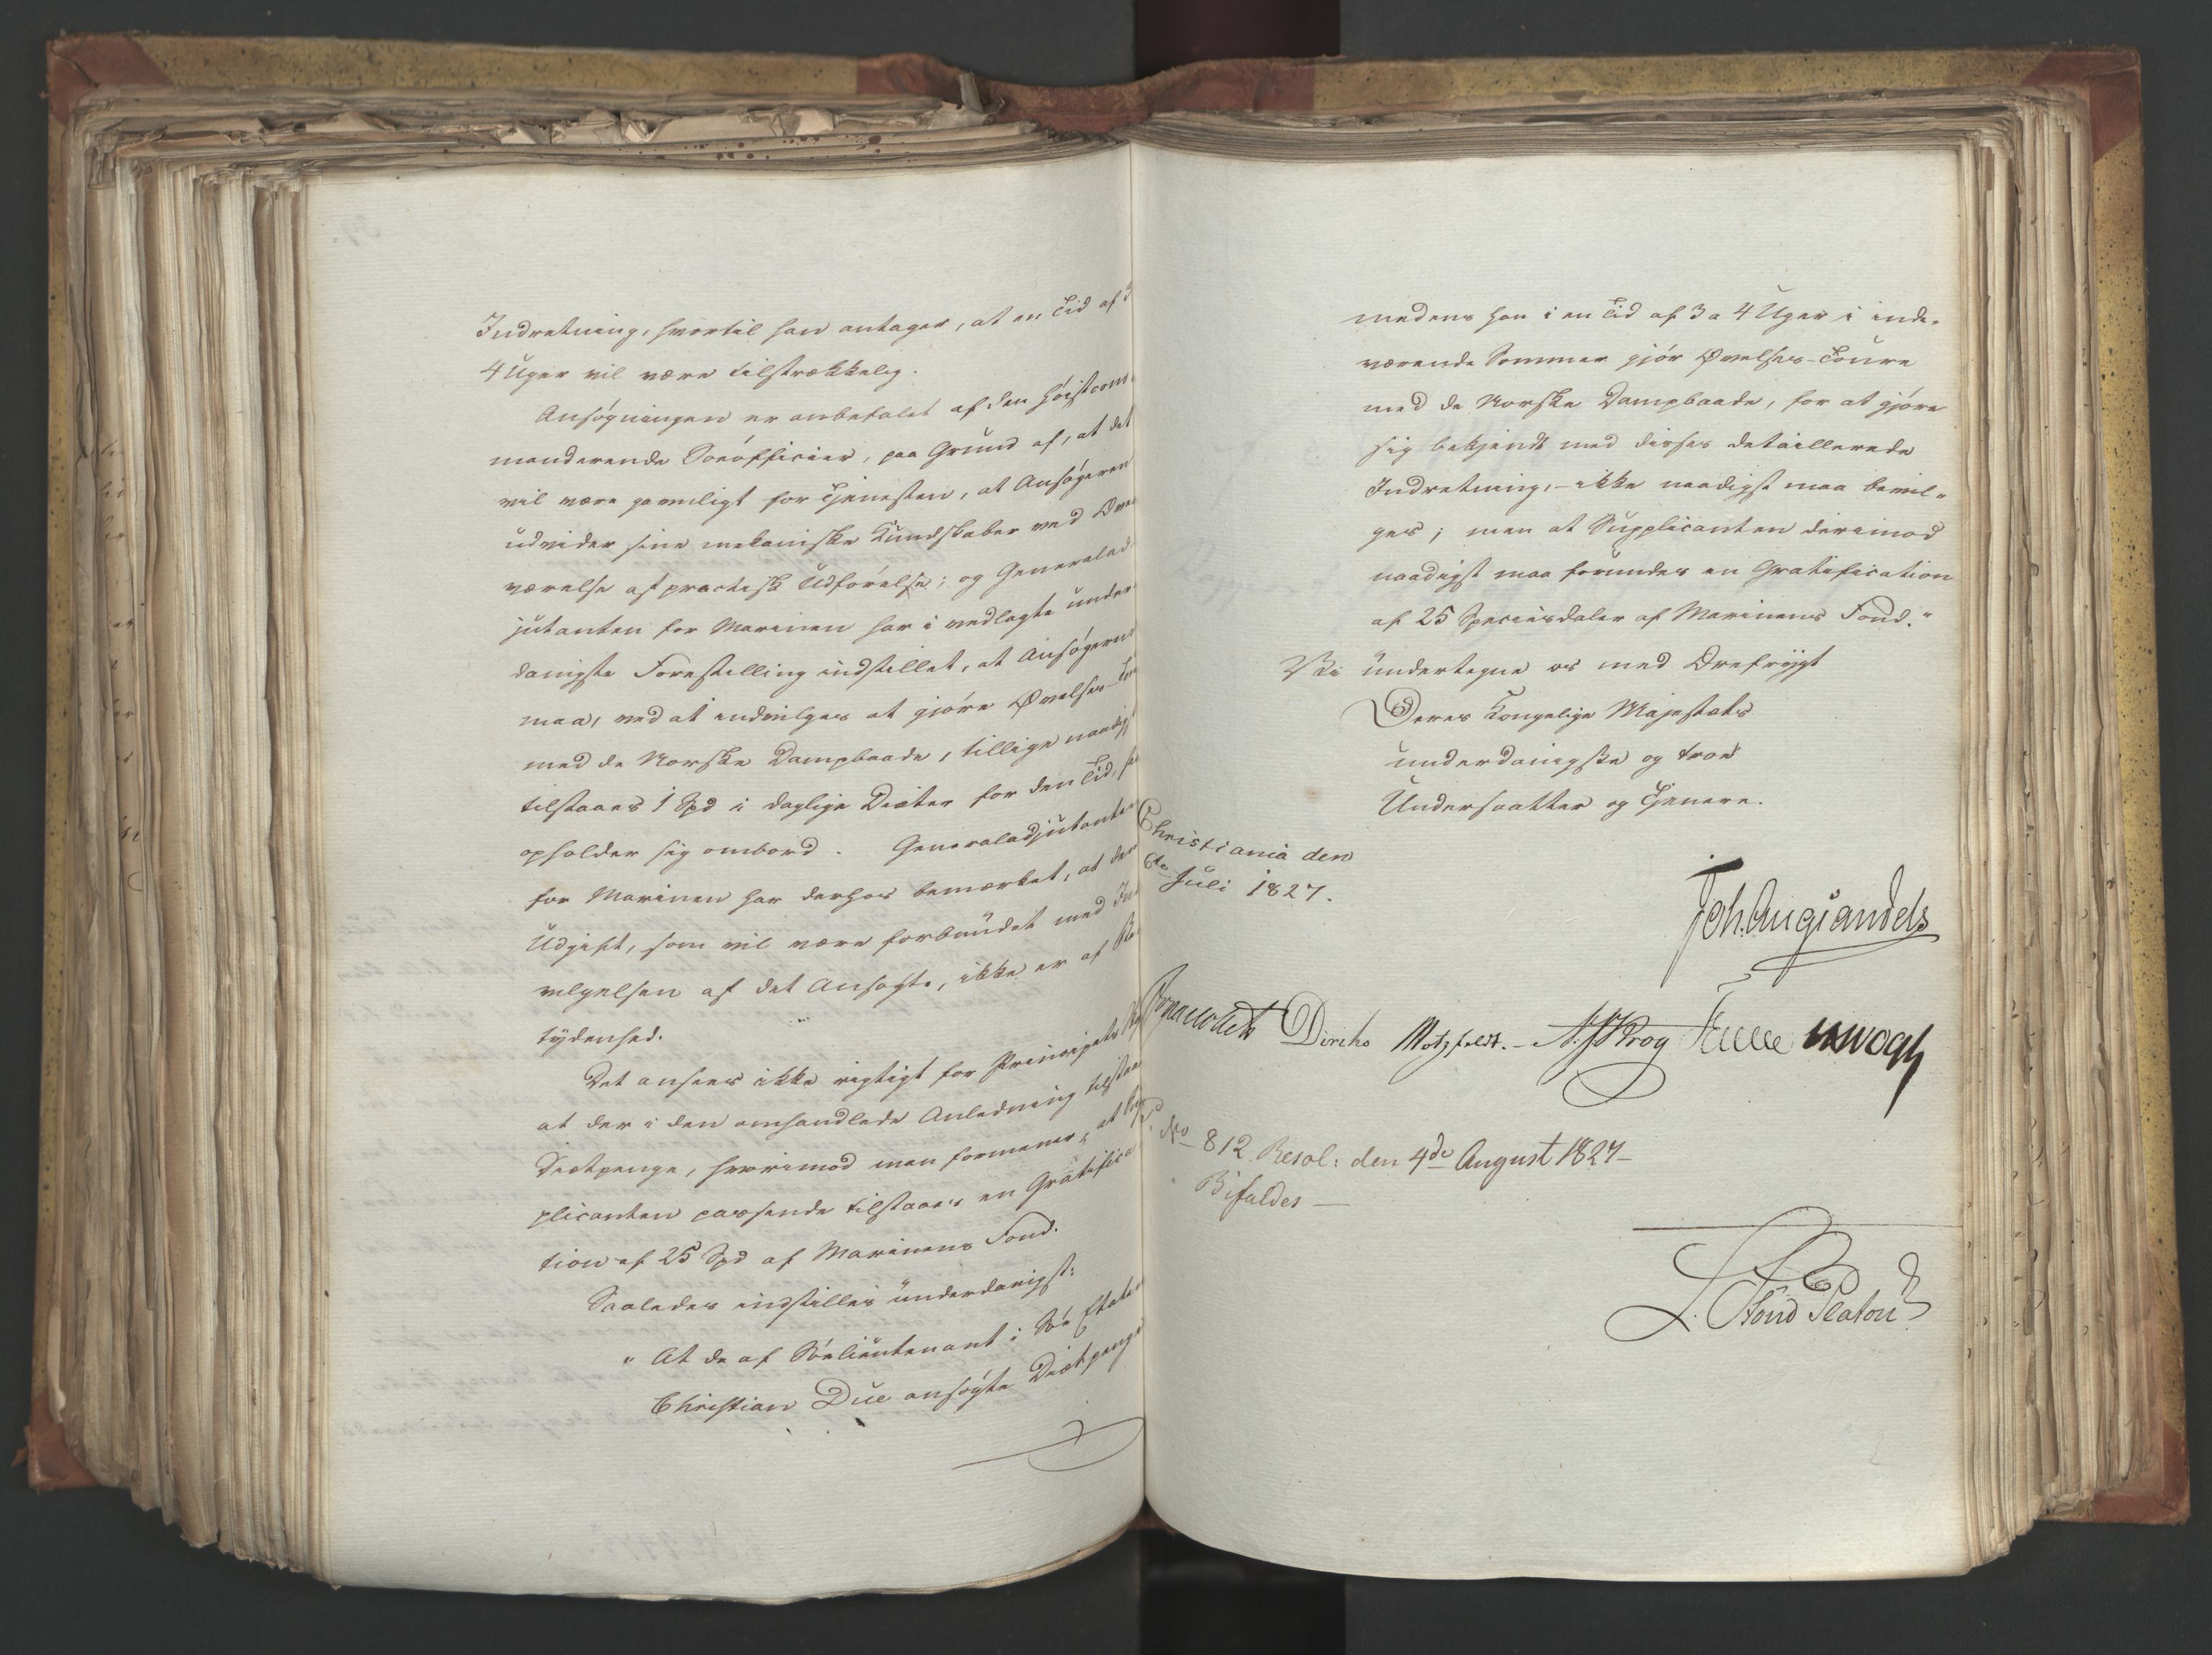 Indretning, hvortil han antager, at en Tid af 3
4 Uger vil være tilstrækkelig.
Ansøgningen er anbefalet af den høistcom-
manderende Søeofficier, paa Grund af, at det
vil være gavnligt for Tjenesten, at Ansøgeren
udvider sine mekaniske Kundskaber ved Over
værelse af practisk Udførelse; og Generalad-
jutanten for Marinen har i vedlagte under
danigste Forestilling indstillet, at Ansøgeren
maa, ved at indvilges at gjøre Øvelses-
med de Norske Dampbaade, tillige naadigst
tilstaaes 1 Spd i daglige Diæter for den Tid, han
opholder sig ombord. Generaladjutanten
for Marinen har derhos bemærket, at den
Udgift, som vil være forbundet med Ind
vilgelsen af det Ansøgte, ikke er af Be
tydenhed.
Det ansees ikke rigtigt for Princigets
at der i den omhandlede Anledning tilstaaes
Diætpenge, hvorimod man formener, at Sup
plicanten passende tilstaaes en Gratifica
tion af 25 Spd af Marinens Fond.
Saaledes indstilles underdanigst:
" At de af Sølieutenant i Sø Etaten
Christian Due ansøgte Diætpenge
medens han i en Tid af 3 a 4 Uger i inde-
værende Sommer gjør Øvelses-Toure
med de Norske Dampbaade, for at gjøre
sig bekjendt med disses detaillerede
Indretning, - ikke naadigst maa bevil-
ges; men at Supplicanten derimod
naadigst maa forundes en Gratification
af 25 Speciesdaler af Marinens Fond."
Vi undertegne os med Ærefrygt
Deres Kongelige Majestæts
underdanigste og troe
Undersaatter og Tjenere.
Christiania den
6te Juli 1827.
Joh. Aug. Sandels
Diriks Motzfeldt. - Krog
No 812 Resol: den 4de August 1827 -
Bifaldes -